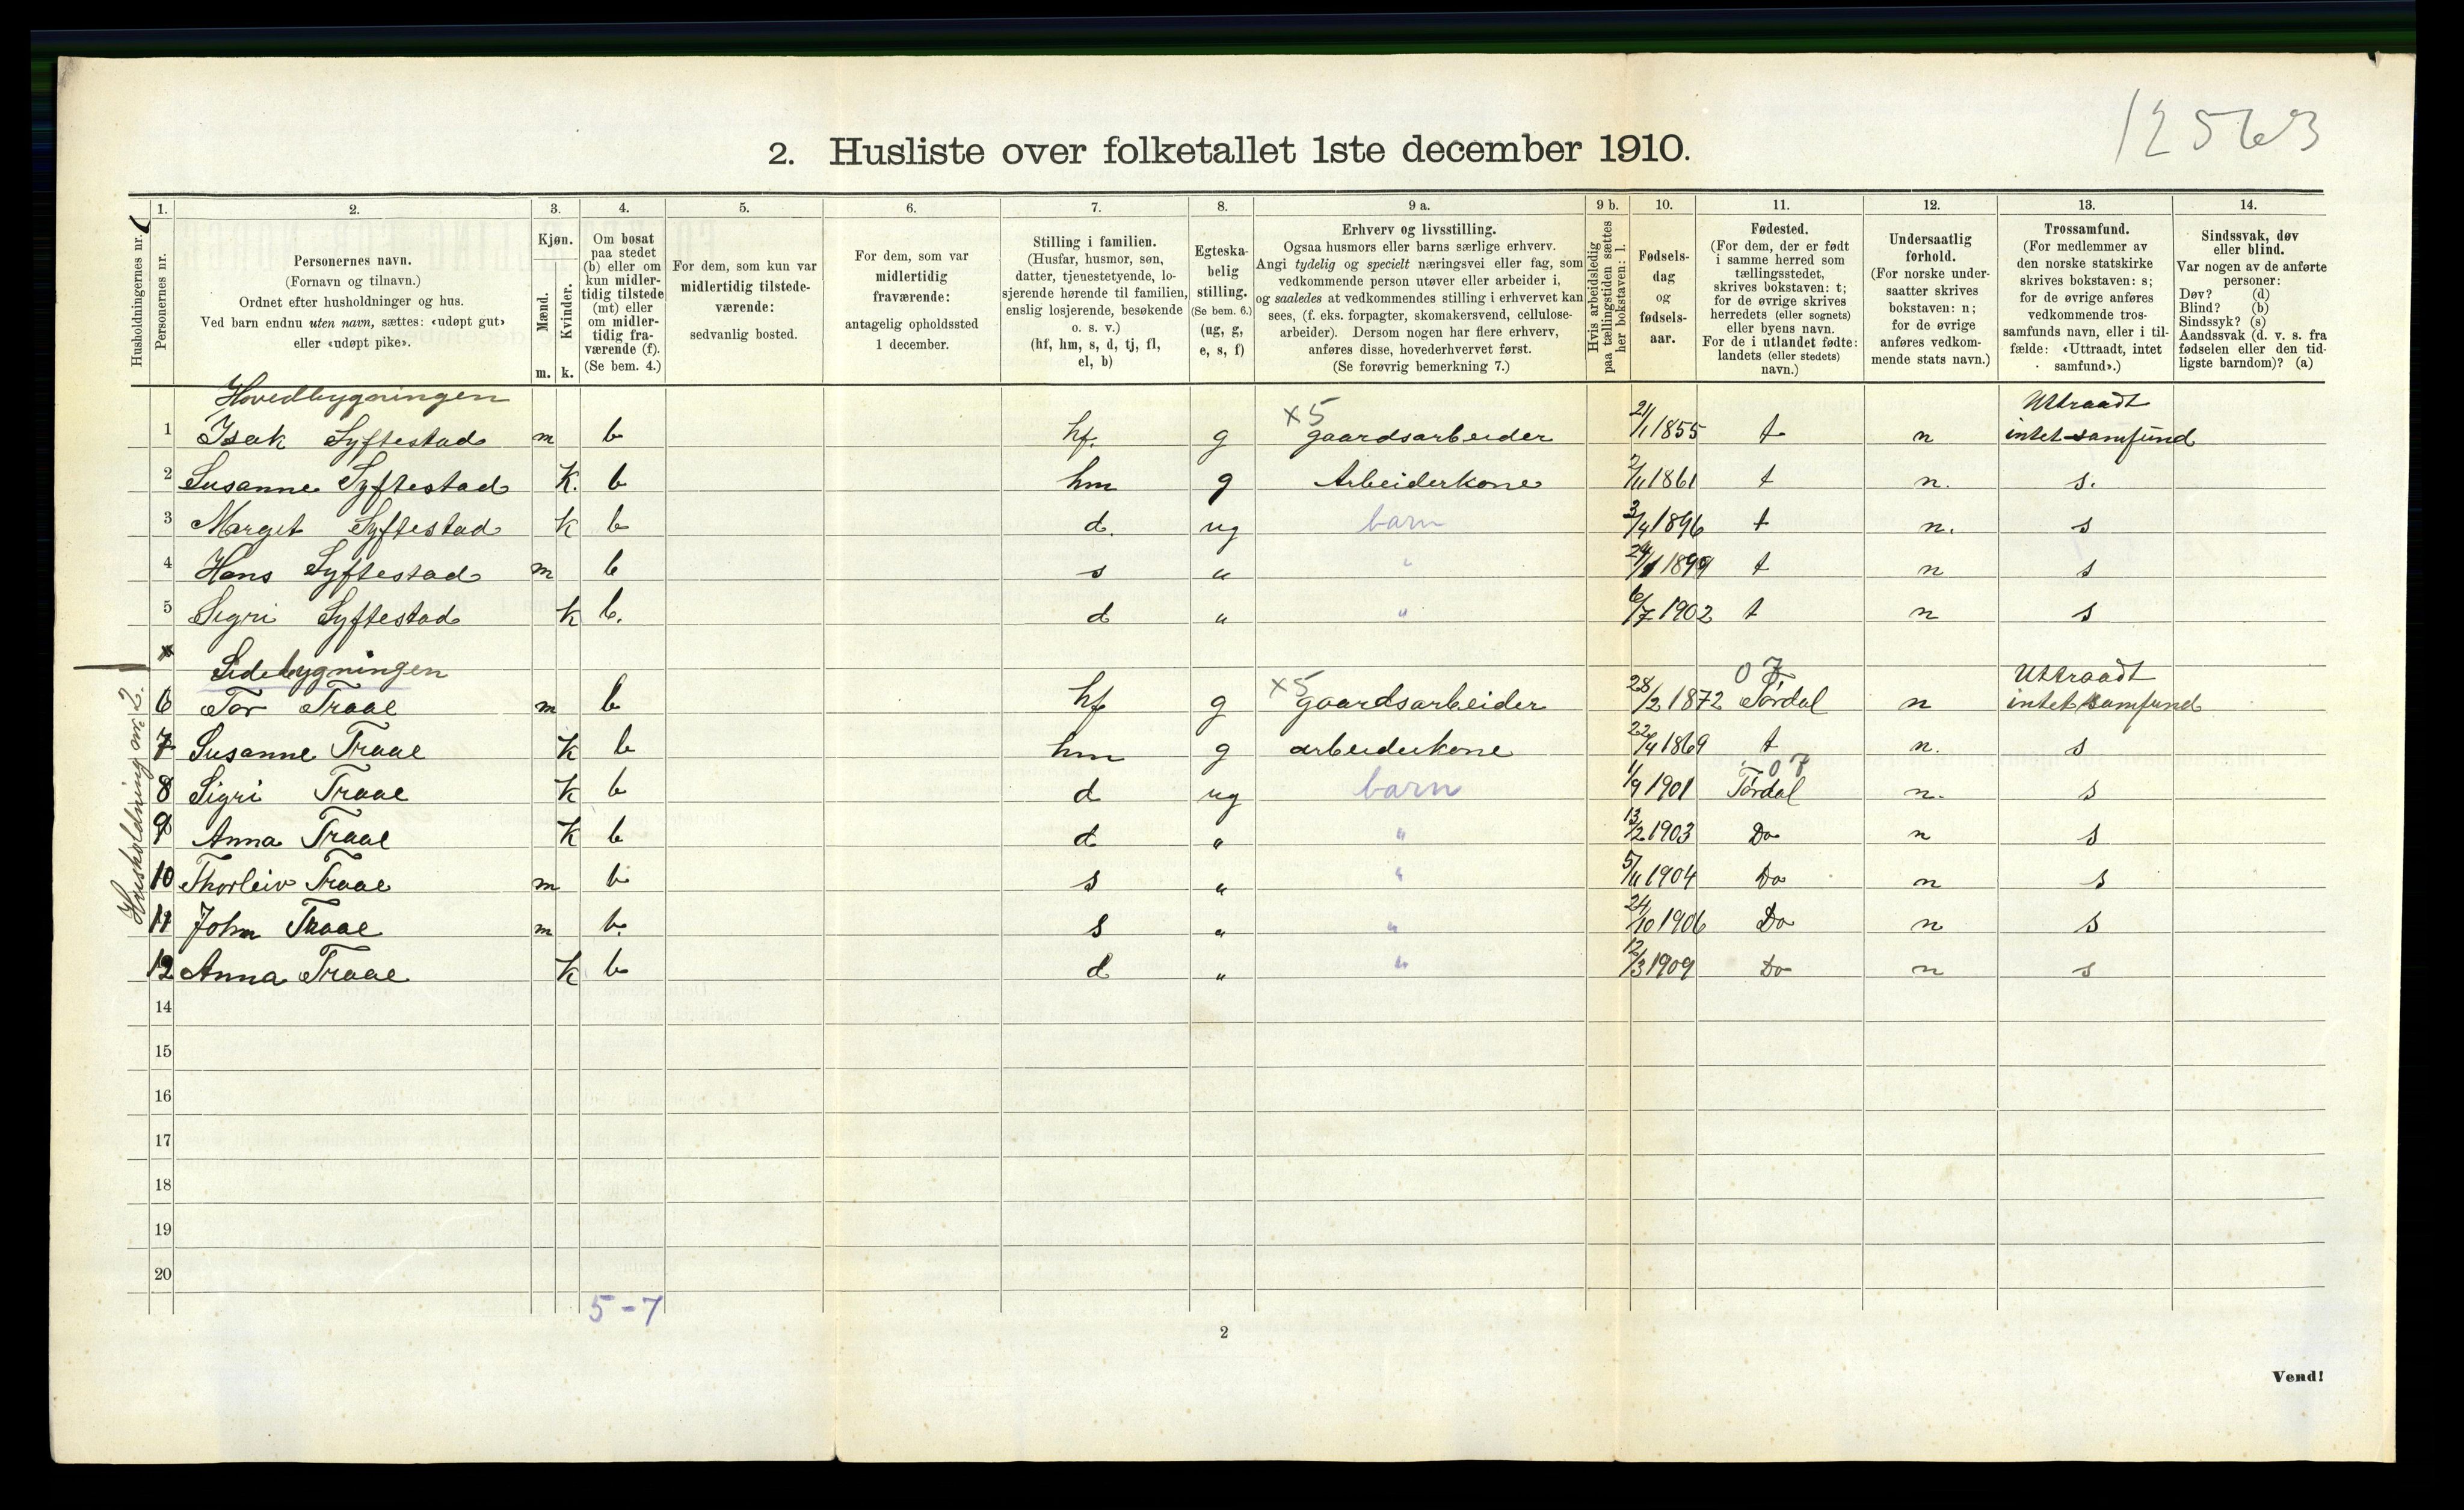 12563
2. Husliste over folketallet 1ste december 1910.
Husholdningernes nr.
1.
Personernes nr.
2.
Personernes navn.
(Fornavn og tilnavn.)
Ordnet efter husholdninger og hus.
Ved barn endnu uten navn, sættes: «udøpt gut»
eller «udøpt pike».
3.
Kjøn.
Mænd.
Kvinder.
m. k.
4.
Om bosat
paa stedet
(b) eller om
kun midler-
tidig tilstede
(mt) eller
om midler-
tidig fra-
værende (f).
(Se bem. 4.)
5.
For dem, som kun var
midlertidig tilstede-
værende:
sedvanlig bosted.
6.
For dem, som var
midlertidig
fraværende:
antagelig opholdssted
1 december.
7.
Stilling i familien.
(Husfar, husmor, søn,
datter, tjenestetyende, lo-
sjerende hørende til familien,
enslig losjerende, besøkende
o. s. v.)
(hf, hm, s, d, tj, fl,
el, b)
8.
Egteska-
belig
stilling.
(Se bem. 6.)
(ug, g,
e, s, f)
9 a.
Erhverv og livsstilling.
Ogsaa husmors eller barns særlige erhverv.
Angi tydelig og specielt næringsvei eller fag, som
vedkommende person utøver eller arbeider i,
og saaledes at vedkommendes stilling i erhvervet kan
sees, (f. eks. forpagter, skomakersvend, cellulose-
arbeider). Dersom nogen har flere erhverv,
anføres disse, hovederhvervet først.
(Se forøvrig bemerkning 7.)
9 b.
Hvis arbeidsledig
paa tællingstiden sættes
her bokstaven: l.
10.
Fødsels-
dag
og
fødsels-
aar.
11.
Fødested.
(For dem, der er født
i samme herred som
tællingsstedet,
skrives bokstaven: t;
for de øvrige skrives
herredets (eller sognets)
eller byens navn.
For de i utlandet fødte:
landets (eller stedets)
navn.)
12.
Undersaatlig
forhold.
(For norske under-
saatter skrives
bokstaven: n;
for de øvrige
anføres vedkom-
mende stats navn.)
13.
Trossamfund.
(For medlemmer av
den norske statskirke
skrives bokstaven: s;
for de øvrige anføres
vedkommende tros-
samfunds navn, eller i til-
fælde: «Uttraadt, intet
samfund».)
14.
Sindssvak, døv
eller blind.
Var nogen av de anførte
personer:
Døv? (d)
Blind? (b)
Sindssyk? (s)
Aandssvak (d. v. s. fra
fødselen eller den tid-
ligste barndom)? (a)
Hovedbygningen
x5
Uttraadt
1 Isak Syftestad m b hf. g gaardsarbeider 21/1 1855 t n intet samfund
2 Susanne Syftestad K. b hm g Arbeiderkone 2/11 1861 t n. s.
3 Marget Syftestad K b d. ug barn 3/4 1896 t n. s
4 Hans Syftestad m b s " " 1899 t n s
5 Sigri Syftestad K b. d " " 6/7 1902 t n s
Husholdning nr. 2.
Sidebygningen
x5
07
Uttraadt
6 Tor Traae m b hf g gaardsarbeider 28/2 1872 Tørdal n intet samfund
7 Susanne Traae K b hm g arbeiderkone 22/4 1869 t n. s
07
8 Sigri Traae K b d ug barn 1/9 1901 Tørdal n. s
9 Anna Traae K b d " " 13/2 1903 Do n s
10 Thorleiv Traae m b s " " 5/11 1904 Do n s
11 John Traae m b. s " " 24/10 1906 Do n s
12 Anna Traae K b d " " 12/3 1909 Do n s
14
15
16
17
18
19
20
5-7
2
Vend!